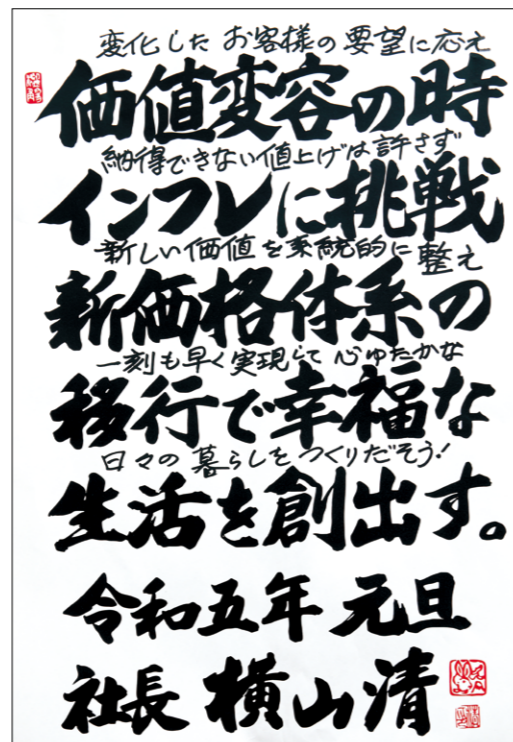 変化した お客様の要望に応え
価値変容の時
納得できない値上げは許さず
インフレに挑戦
新しい価値を系統的に整え
新価格体系の
一刻も早く実現して 心ゆたかな
移行で幸福な
日々の暮らしをつくりだそう！
生活を創出す。
令和五年 元旦
社長 横山清